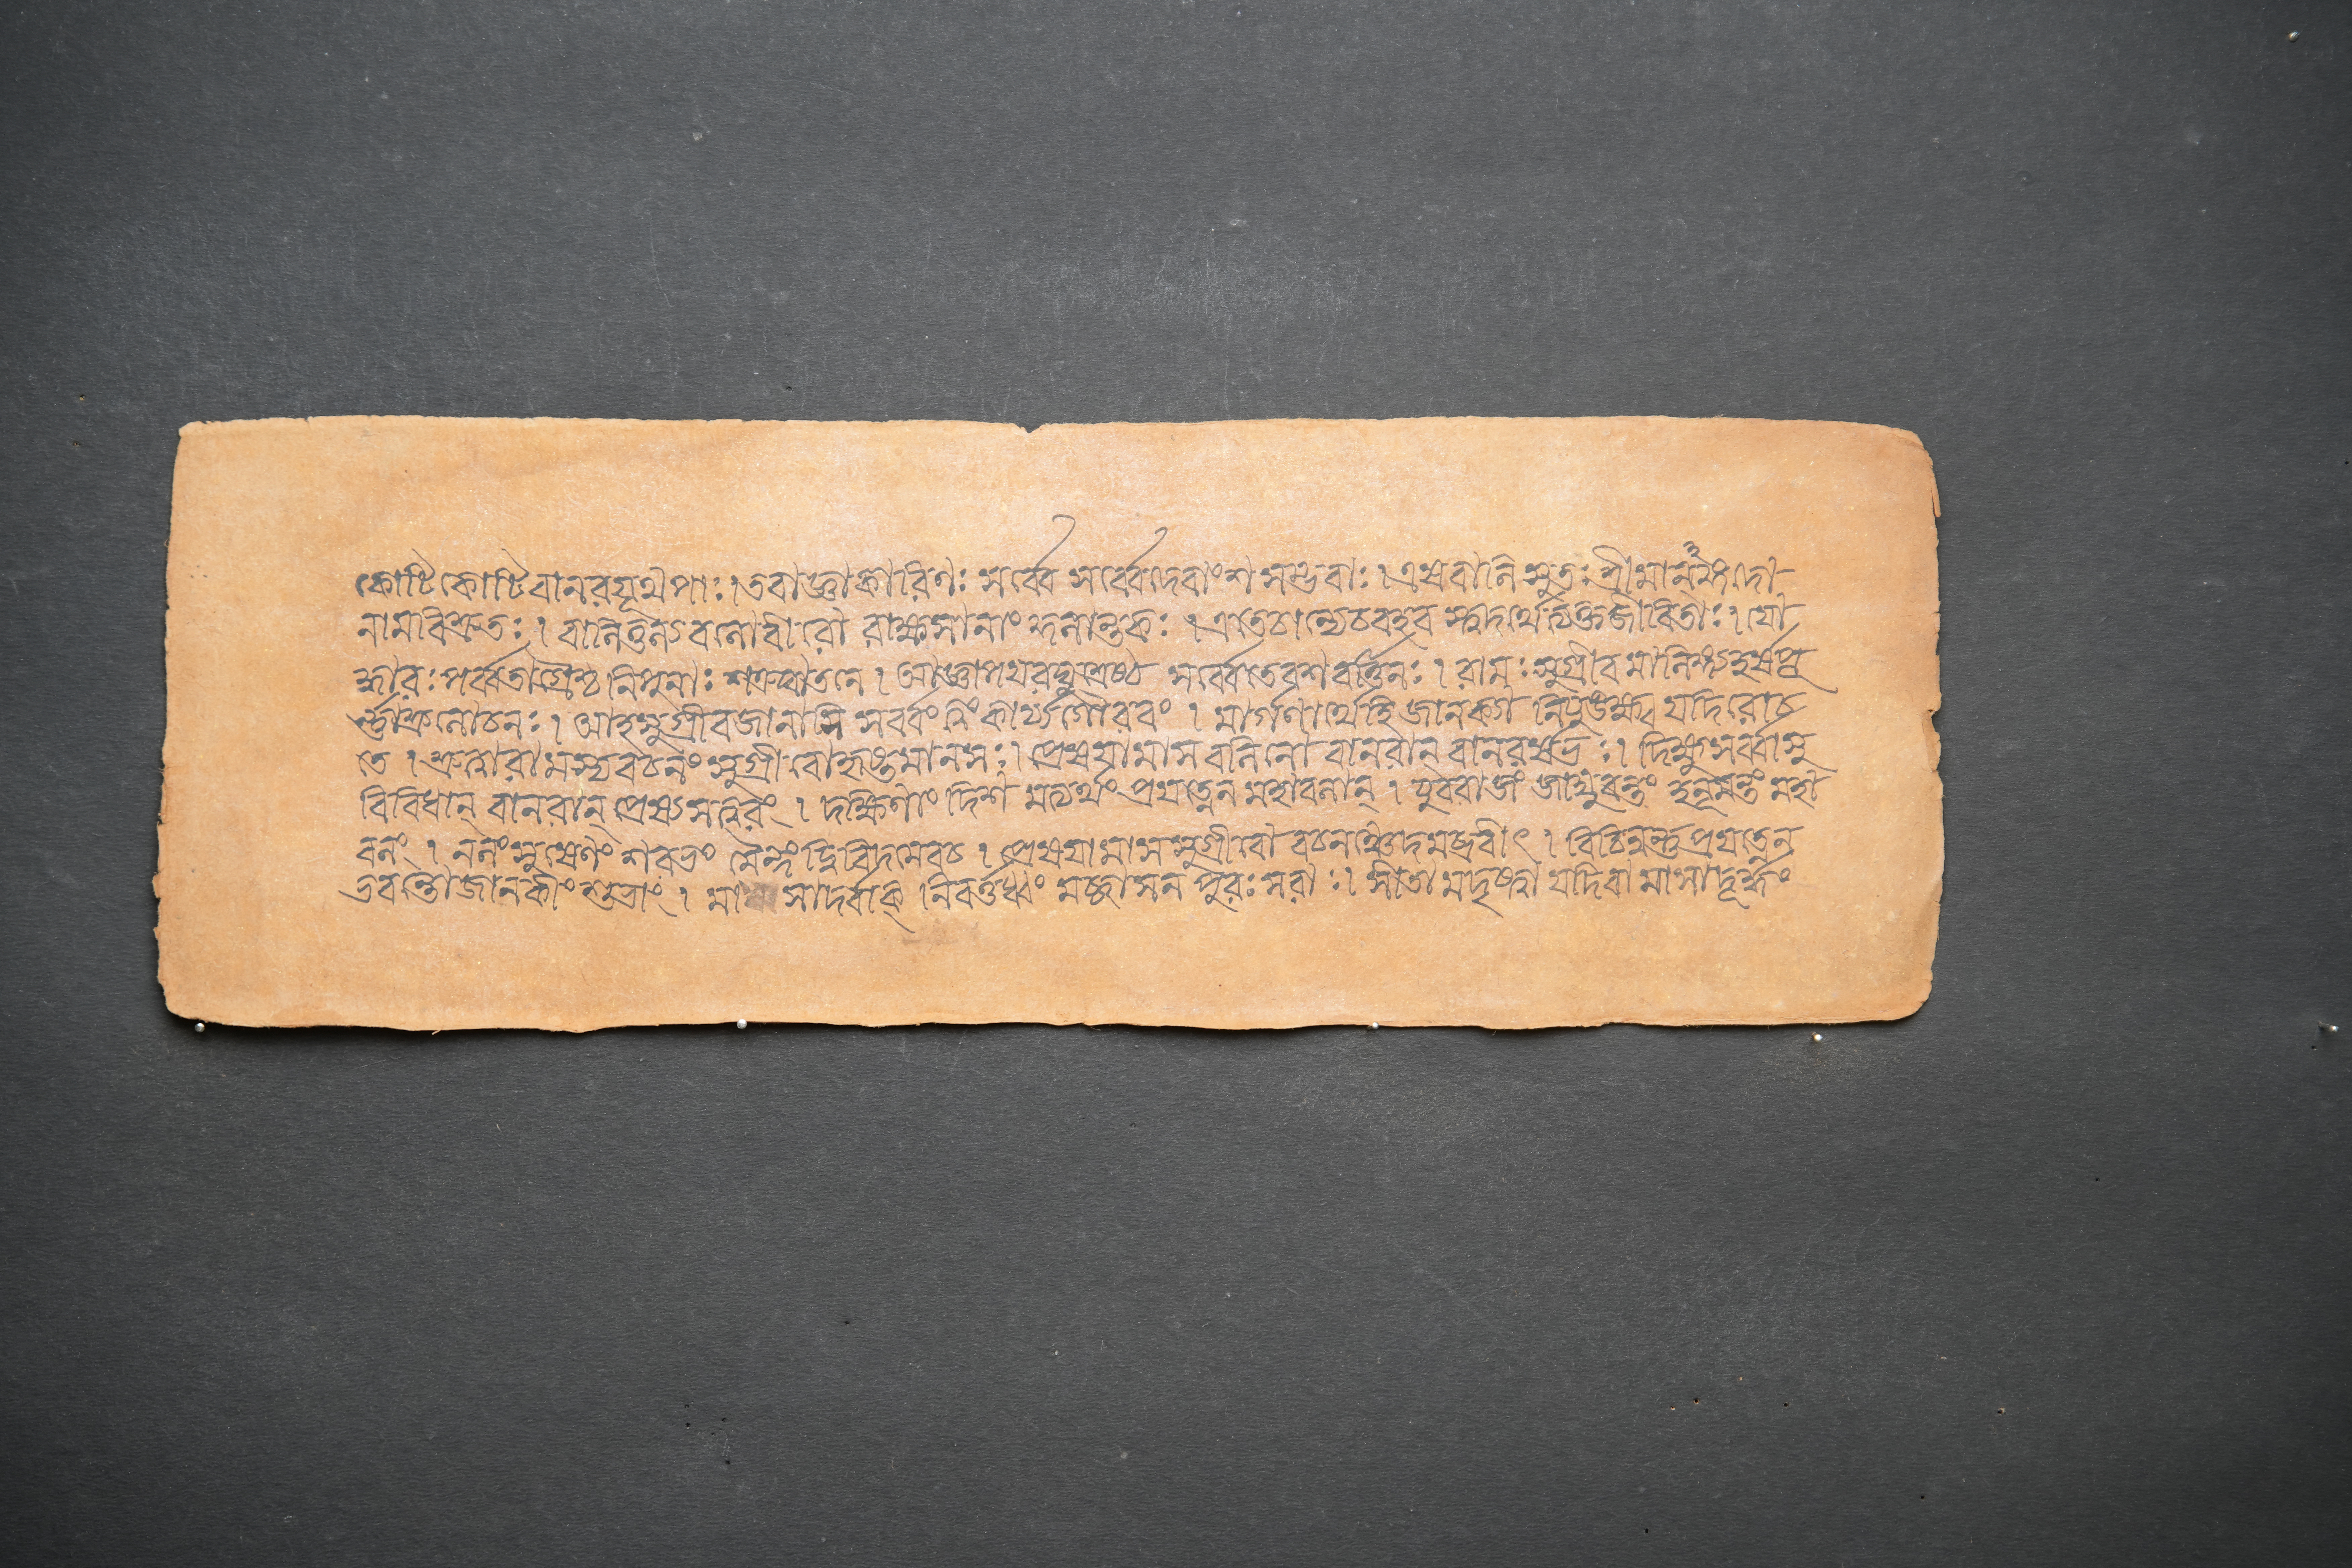 কোটিকোটিবানরযূথপাঃ।তবাজ্ঞাকারিণঃ সর্ব্বে সর্ব্বেদেবাংশসম্ভবাঃ।এষবালিসুতঃশ্রীমানঙ্গদো
নামবিশ্রুতঃ। বালিতুল্যবলোবীরো রাক্ষসানাং বলান্তকঃ।এতেচান্যেচবহব স্ত্বদর্থেত্যক্তজীবিতাঃ। যো
দ্ধারঃপর্ব্বতাগ্রৈশ্চ নিপুনাঃ শত্রুঘাতনে।আজ্ঞাপয়রঘুশ্রেষ্ঠ সর্ব্বেতেবশবর্ত্তিনঃ। রামঃসুগ্রীবমালিঙ্গ্যহর্ষপূ
র্ণ্ণাশ্রুলোচনঃ। আহসুগ্রীবজানাসি সর্ব্বংত্বং কার্য্যগৌরবং। মার্গণার্থংহি জানক্যা নিযুঙক্ষ্ব যদিরোচ
তে।শ্রুত্বারামস্যবচনং সুগ্রীবোহৃষ্টমানসঃ।প্রেষয়ামাসবলিনো বানরান্ বানরর্ষভঃ। দিক্ষুসর্ব্বাসু
বিবিধান্ বানরান্ প্রেষ্যসত্বরং। দক্ষিণাং দিশ মত্যর্থং প্রযত্নেন মহাবলান্। যুবরাজং জাম্বুবন্তং হনূমন্তং মহা
বলং। নলংসুষেণং শরভং মৈন্দং দ্বিবিদমেবচ। প্রেষয়ামাসসুগ্রীবো বচনঞ্চেদমব্রবীৎ। বিচিন্বন্তুপ্রযত্নেন
ভবন্তোজানকীং শুভাং। মাসাদর্বাক্ নিবর্ত্তধ্বং মচ্ছাসনপুরঃসরাঃ। সীতামদৃষ্ট্বা যদিবা মাসাদূর্দ্ধং